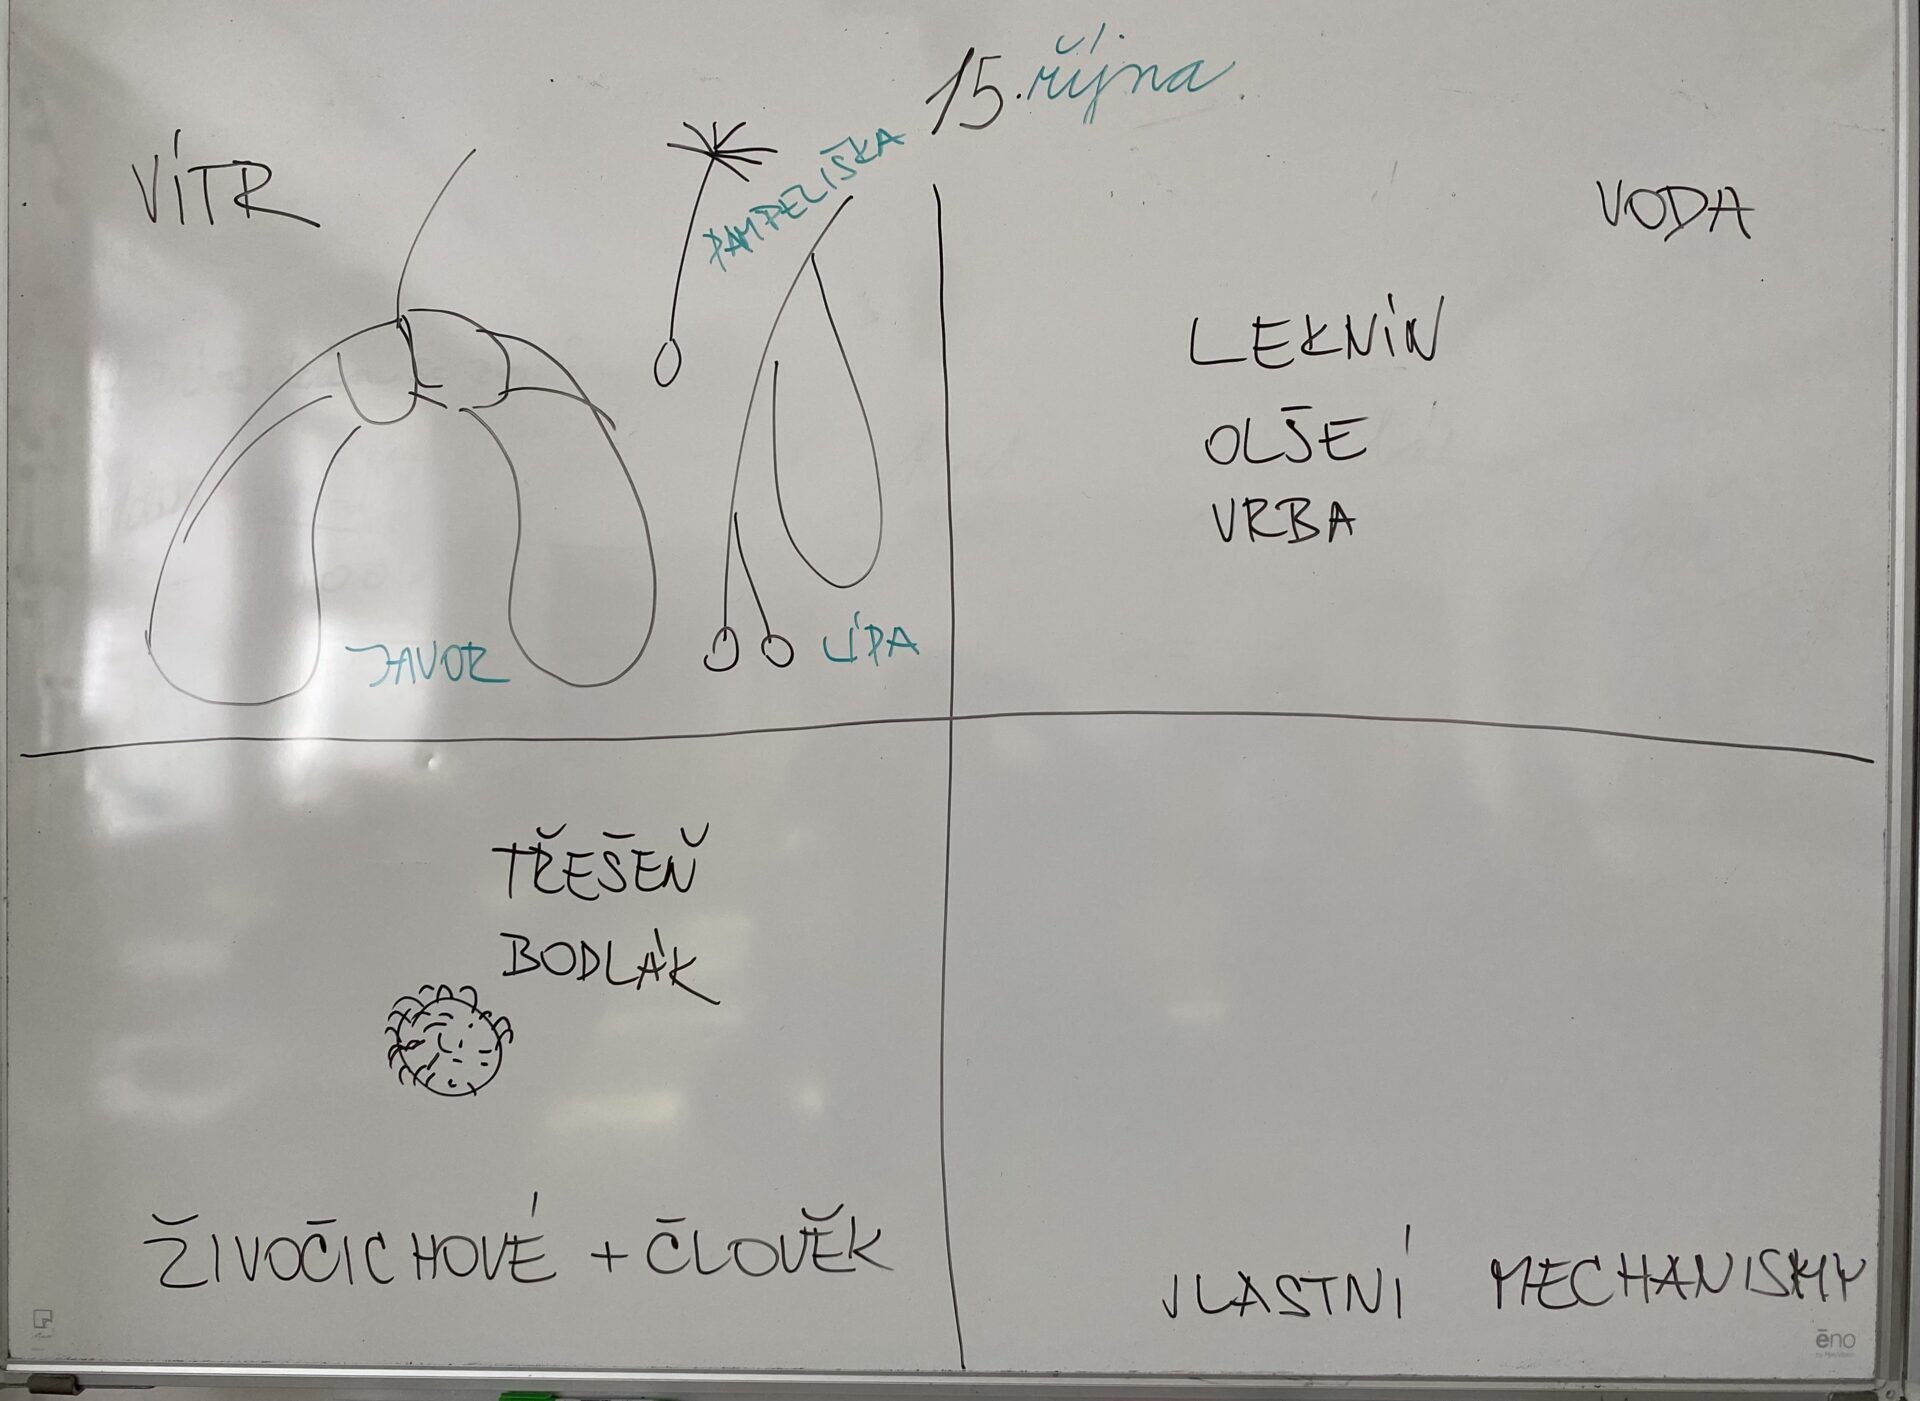 15. října
VÍTR
PAMPELIŠKA
JAVOR
LÍPA
VODA
LEKNÍN
OLŠE
VRBA
TŘEŠEŇ
BODLÁK
ŽIVOČICHOVÉ + ČLOVĚK
VLASTNÍ MECHANISMY
ēno